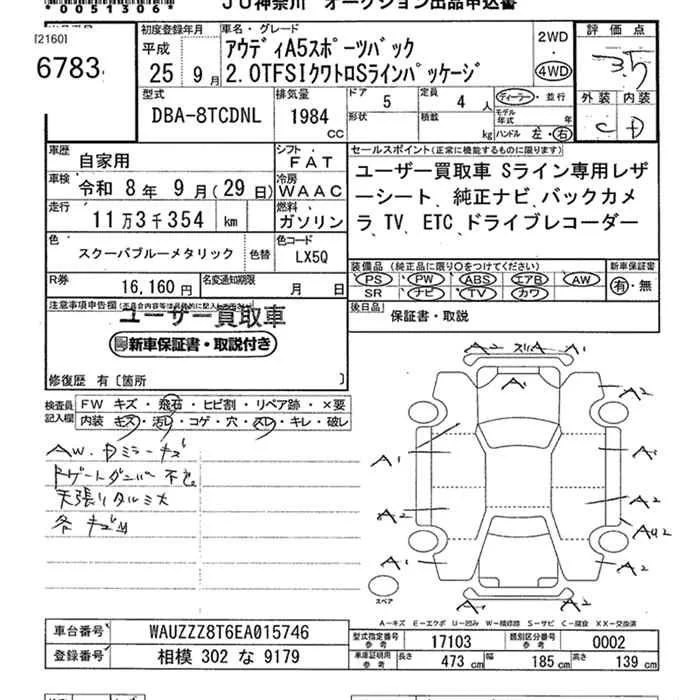 *0051306*
JU神奈川 オークション出品申込書
[2160]
6783
初度登録年月
平成
25 年 9 月
車名・グレード
アウディA5スポーツバック
2.0TFSIクワトロSラインパッケージ
2WD
4WD
評価点
3.5
外装 内装
C D
型式
DBA-8TCDNL
排気量
1984
CC
ドア 5
形状
定員 4 人
積載 kg
ディーラー・並行
モデル年式 年
ハンドル 左・右
車歴
自家用
シフト
FAT
車検
令和 8 年 9 月(29 日)
冷房
WAAC
走行
11 万 3 千 354 km
燃料
ガソリン
色
スクーバブルーメタリック
色替
色コード
LX5Q
R券
16,160 円
名変通知期限
月 日
セールスポイント(正常に機能するものに限ります)
ユーザー買取車 Sライン専用レザ
ーシート、純正ナビ、バックカメ
ラ、TV、ETC、ドライブレコーダー
装備品(純正品に限り○をつけてください)
PS PW ABS エアB AW
SR ナビ TV カワ
新車保証書
有・無
後日品
保証書・取説
注意事項申告欄
ユーザー買取車
新車保証書・取説付き
修復歴 有〔箇所 〕
検査員
記入欄
FW キズ・飛石・ヒビ割・リペア跡・×要
内装 キズ・汚レ・コゲ・穴・スレ・キレ・破レ
AW. Dミラーキズ
天張りタルミ大
A2 A A1
A1
A2
A1
A1
A2
A2
AU2
A1
A1
A2 A1
スペア
A-キズ E-エクボ U-凹み W-補修跡 S-サビ C-腐食 XX-交換済
車台番号
WAUZZZ8T6EA015746
登録番号
相模 302 な 9179
型式指定番号
参考
17103
類別区分番号
参考
0002
車庫証明用
参考
長さ 473 cm
幅 185 cm
高さ 139 cm